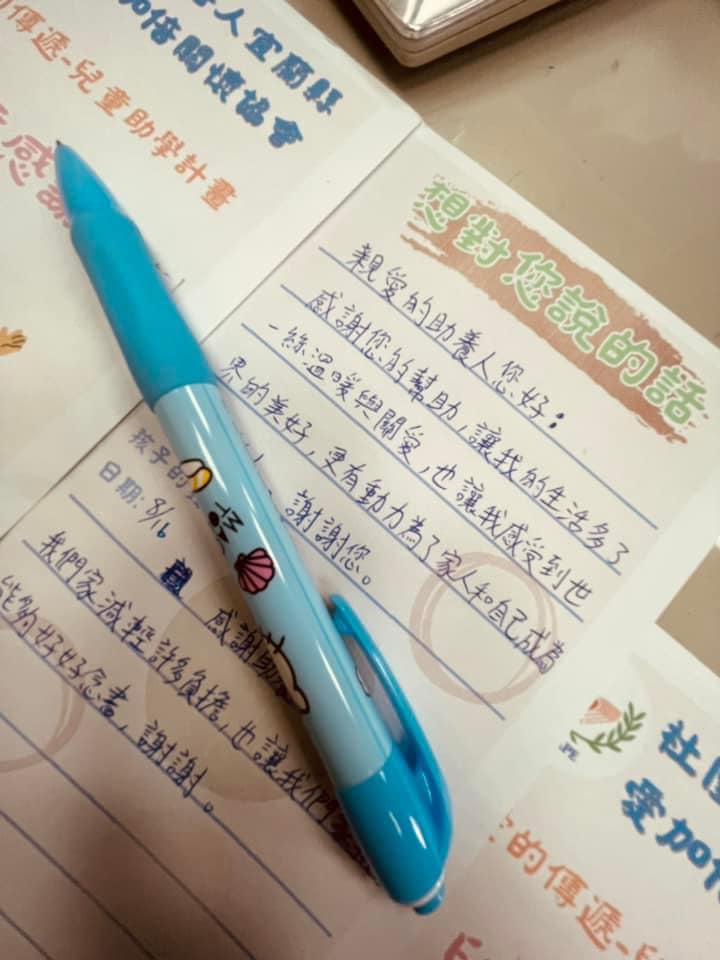 人宜蘭縣
加倍關懷協會
傳遞-兒童助學計畫
感謝
想對您說的話
親愛的助養人您好：
感謝您的幫助，讓我的生活多了
一絲溫暖與關愛，也讓我感受到世
界的美好，更有動力為了家人和自己成為
謝謝您。
孩子的
日期：8/16
感謝助
我們家減輕許多負擔，也讓我們
能夠好好念書，謝謝。
JPE
社
愛加
的傳遞-兒